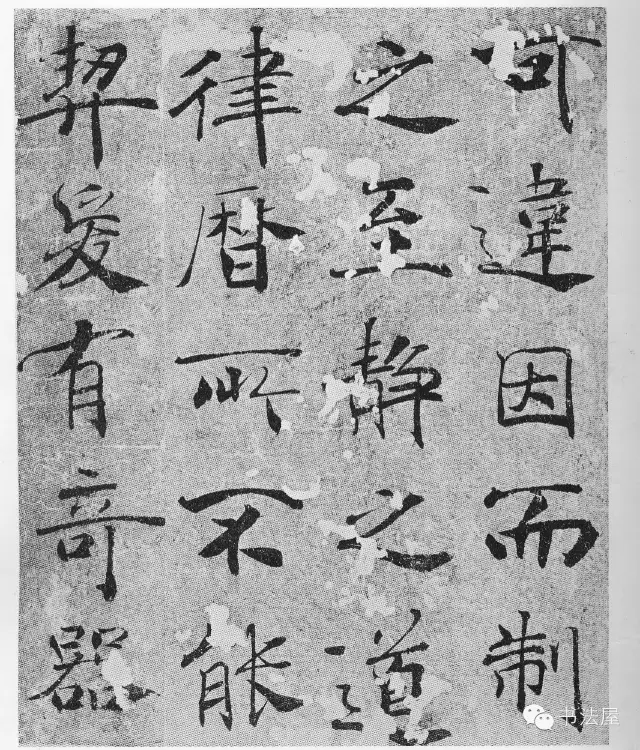 可違因而制
之至静之道
律曆所不能
契爰有奇器
书法屋